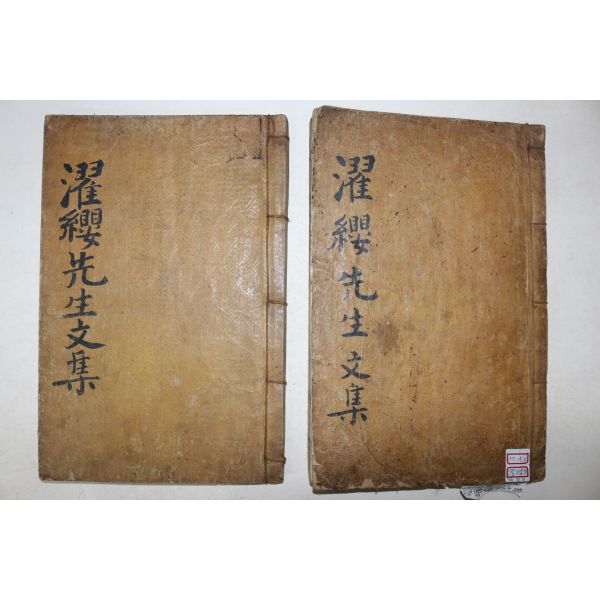 濯纓先生文集
濯纓先生文集